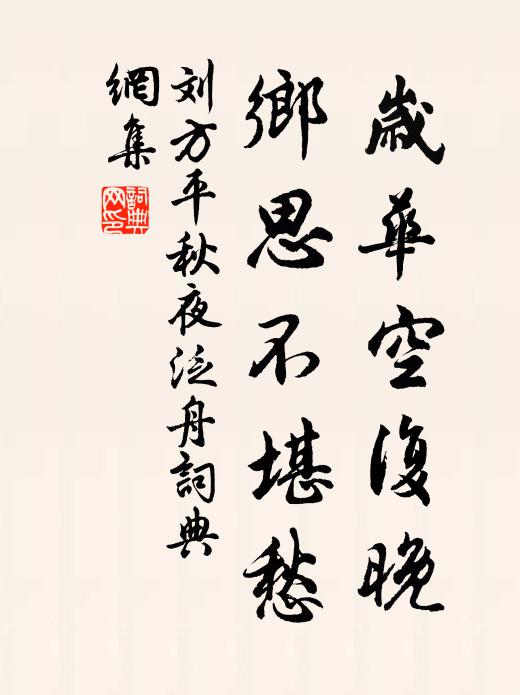 歲華空復晚
鄉思不堪愁
刘方平秋夜泛舟詞典
網集
詞典网印